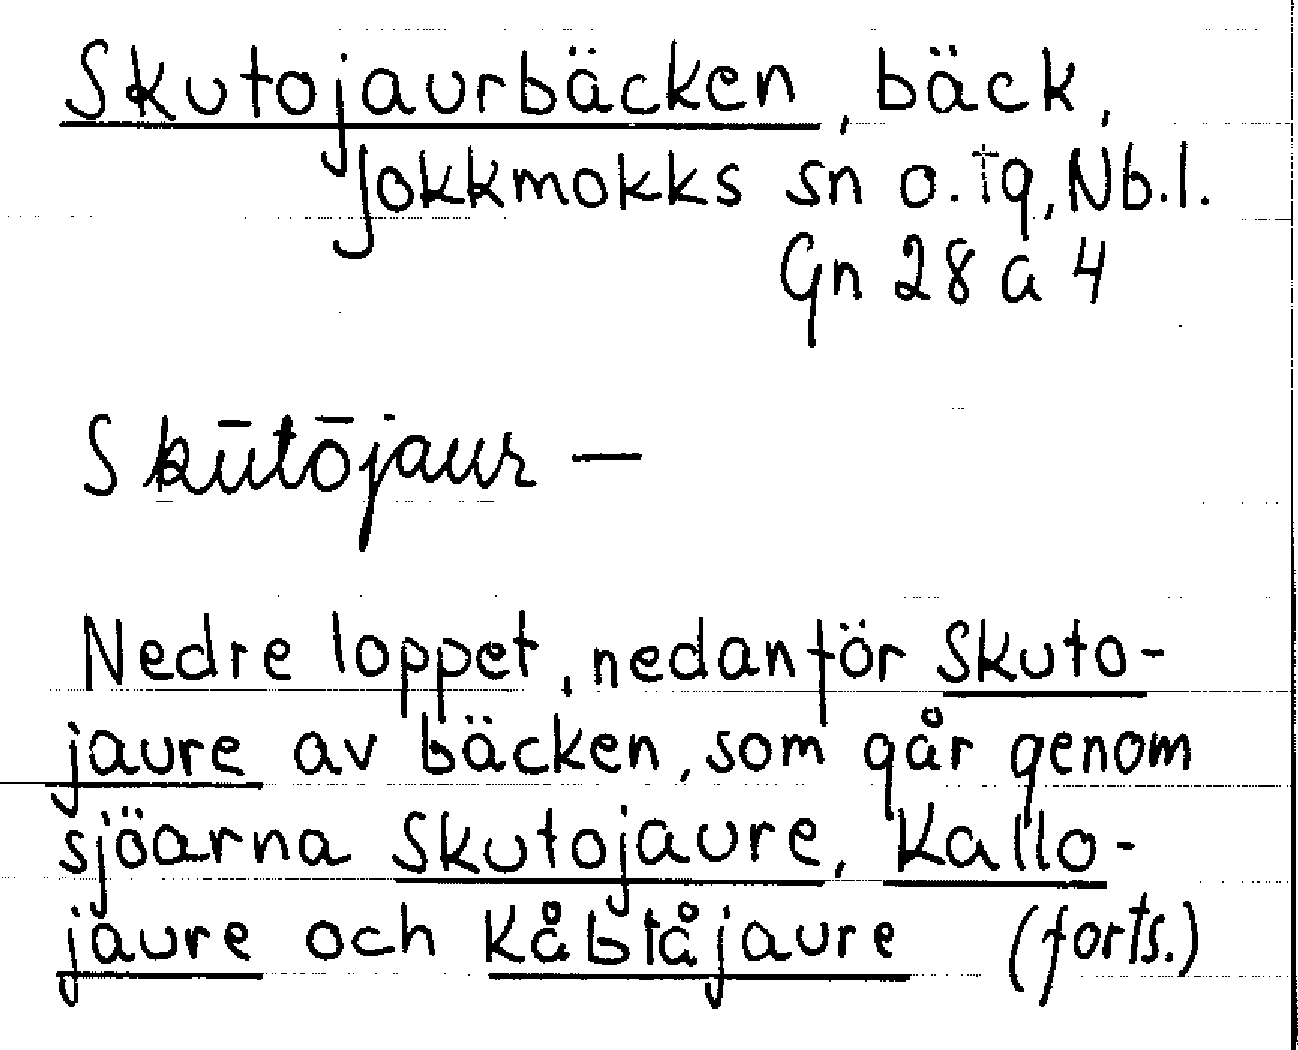 Skutojaurbäcken, bäck,
Jokkmokks sn o. tg, Nb.l.
Gn 28 a 4
Skūtōjaur —
Nedre loppet, nedanför Skuto-
jaure av bäcken, som går genom
sjöarna Skutojaure, Kallo-
jaure och Kåbtåjaure (forts.)